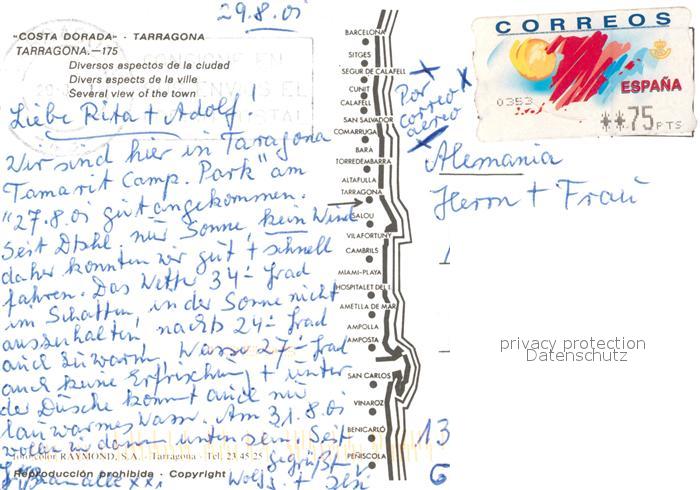 29.8.01
"COSTA DORADA" · TARRAGONA
TARRAGONA.—175
Diversos aspectos de la ciudad
Divers aspects de la ville
Several view of the town
Liebe Rita + Adolf.
Wir sind hier in Taragona
Tamarit Camp. Park" am
"27.8.01 gut angekommen.
Seit Dtshl. nur Sonne, kein Wind
daher konnten wir gut + schnell
fahren. Das Wetter 34- Grad
im Schatten, in der Sonne nicht
auszuhalten! nachts 24- Grad
auch zu warm, Wasser 27- Grad
auch keine Erfrischung + unter
der Dusche kommt auch nur
lauwarmes Wasser. Am 31.8.01
wollen wir dann unten sein. Seit
gegrüßt v.
Wolfg. + Ilse
foto color RAYMOND, S.A. - Tarragona - Tel. 23 45 25
Reproducción prohibida · Copyright
BARCELONA
SITGES
SEGUR DE CALAFELL
CUNIT
CALAFELL
SAN SALVADOR
COMARRUGA
BARA
TORREDEMBARRA
ALTAFULLA
TARRAGONA
SALOU
VILAFORTUNY
CAMBRILS
MIAMI-PLAYA
HOSPITALET DEL I.
AMETLLA DE MAR
AMPOLLA
AMPOSTA
SAN CARLOS
VINAROZ
BENICARLO
PEÑISCOLA
Por
correo
aereo
CORREOS
ESPAÑA
0353
**75 PTS
Alemania
Herrn + Frau
privacy protection
Datenschutz
13
6